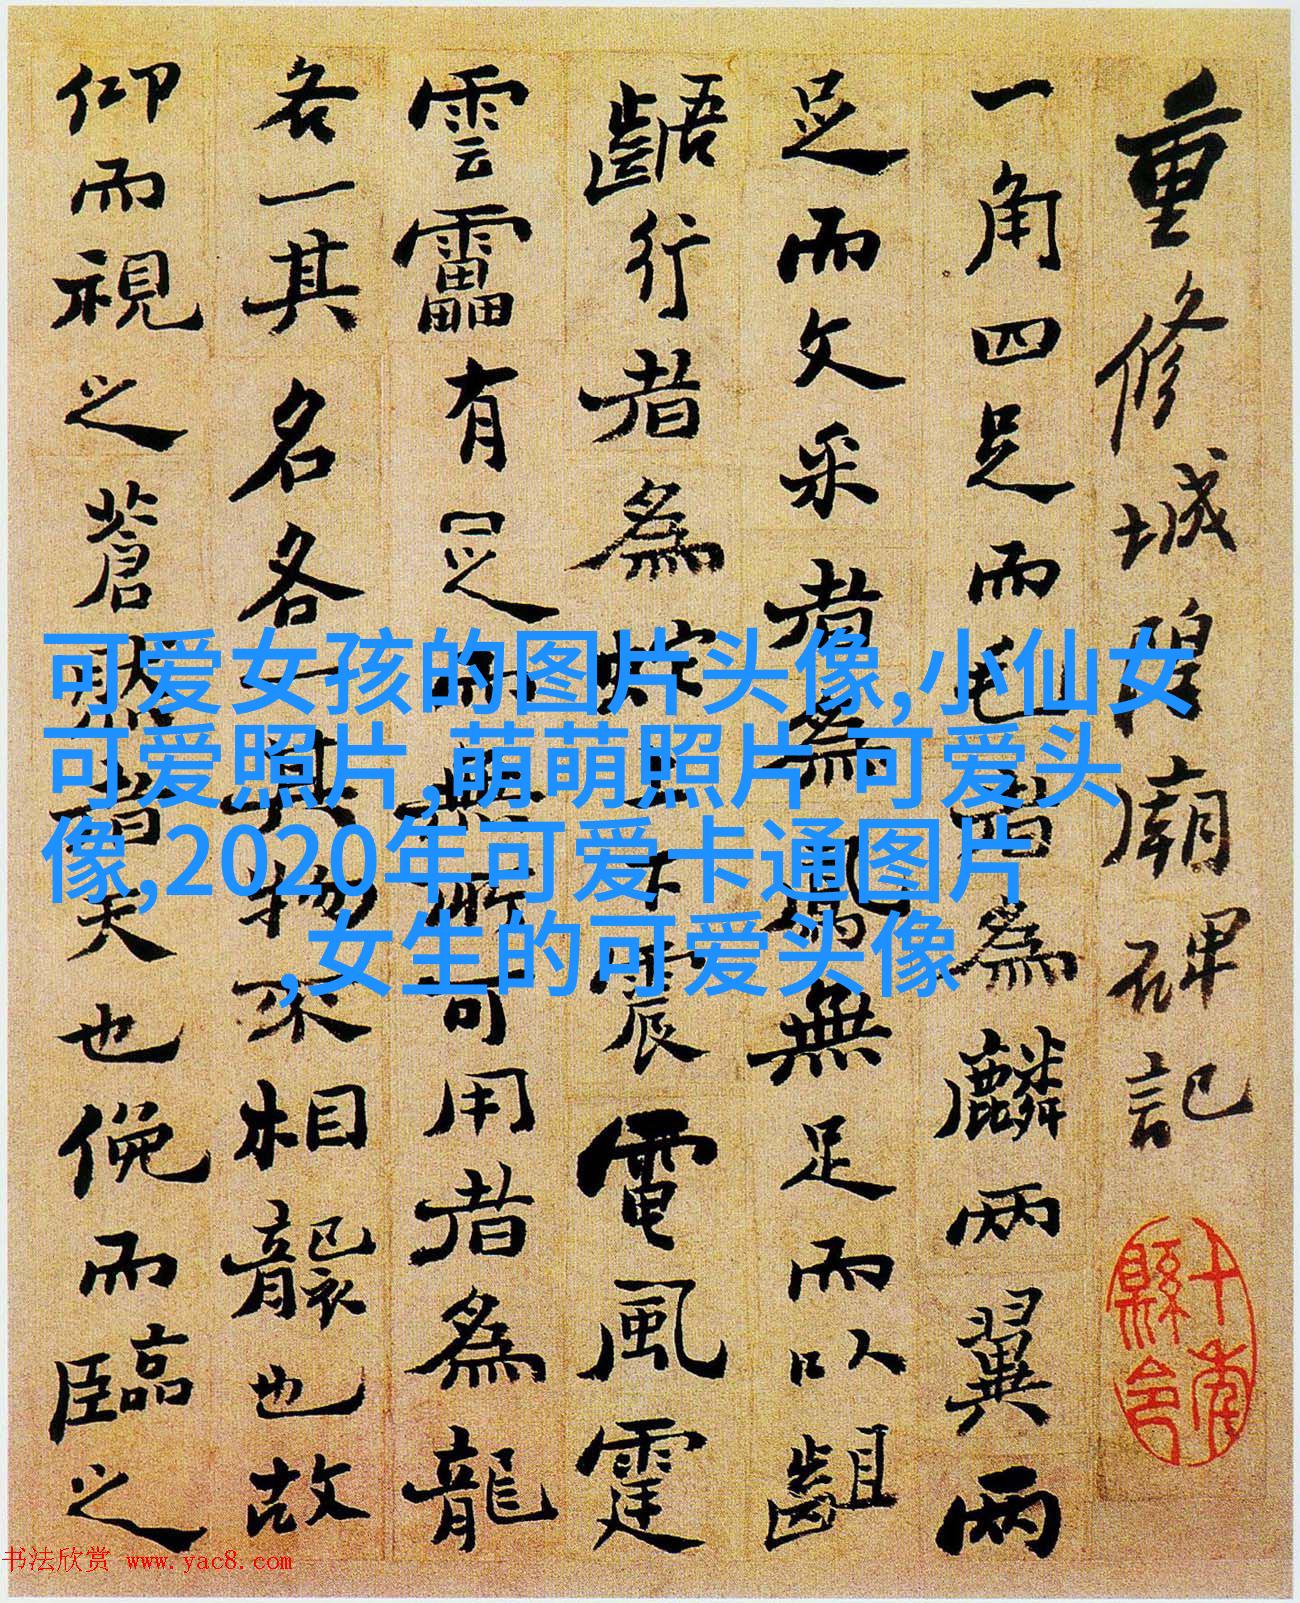 重修城隍廟碑記
一角四足而毛者為麟兩翼兩
足而文采者為鳳無足而以齟
齬行者為蛇上下震電風霆
雲靁有足而無所可用者為龍
各一其名各一其物不相襲也故
仰而視之蒼然者天也俛而臨之
可爱女孩的图片头像,小仙女
可爱照片,萌萌照片 可爱头
像,2020年可爱卡通图片
,女生的可爱头像
书法欣赏 www.yac8.com